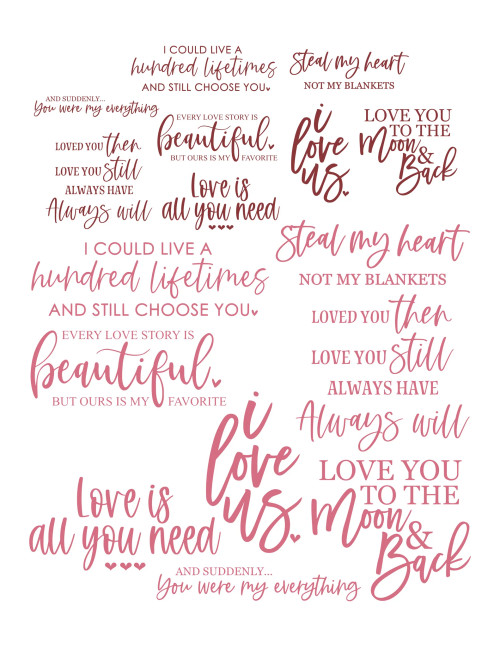 I COULD LIVE A
hundred lifetimes
AND STILL CHOOSE YOU
Steal my heart
NOT MY BLANKETS
AND SUDDENLY...
You were my everything
EVERY LOVE STORY IS
beautiful.
BUT OURS IS MY FAVORITE
i
love
us.
LOVE YOU
TO THE
Moon
&
Back
LOVED YOU then
LOVE YOU still
ALWAYS HAVE
Always will
Love is
all you need
I COULD LIVE A
hundred lifetimes
AND STILL CHOOSE YOU
Steal my heart
NOT MY BLANKETS
EVERY LOVE STORY IS
beautiful.
BUT OURS IS MY FAVORITE
LOVED YOU then
LOVE YOU still
ALWAYS HAVE
Always will
i
love
us.
LOVE YOU
TO THE
Moon
&
Back
Love is
all you need
AND SUDDENLY...
You were my everything